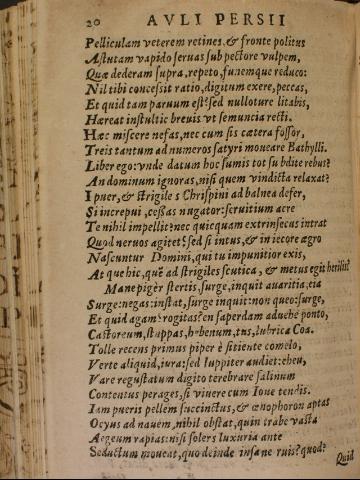 20 AVLI PERSII
Pelliculam veterem retines, & fronte politus
Astutam vapido seruas sub pectore vulpem,
Quæ dederam supra, repeto, funemque reduco:
Nil tibi concessit ratio, digitum exere, peccas,
Et quid tam paruum est? sed nullo ture litabis,
Hæreat in stultis breuis vt semuncia recti.
Hæc miscere nefas, nec cum sis cætera fossor,
Treis tantum ad numeros satyri moueare Bathylli.
Liber ego: vnde datum hoc sumis tot subdite rebus?
An dominum ignoras, nisi quem vindicta relaxat?
I puer, & strigiles Chrispini ad balnea defer,
Si increpui, cessas nugator: seruitium acre
Te nihil impellit: nec quicquam extrinsecus intrat
Quod neruos agitet? sed si intus, & in iecore ægro
Nascuntur Domini, qui tu impunitior exis,
At que hic, quē ad strigiles scutica, & metus egit herilis?
Mane piger stertis, surge, inquit auaritia, eia
Surge: negas: instat, surge inquit: non queo: surge,
Et quid agam? rogitas? en saperdam aduehe ponto,
Castoreum, stuppas, hebenum, tus, lubrica Coa.
Tolle recens primus piper è sitiente camelo,
Verte aliquid, iura: sed Iuppiter audiet: eheu,
Vare regustatum digito terebrare salinum
Contentus perages, si viuere cum Ioue tendis.
Iam pueris pellem succinctus, & œnophoron aptas
Ocyus ad nauem, nihil obstat, quin trabe vasta
Aegeum rapias: nisi solers luxuria ante
Seductum moueat, quo deinde insane ruis? quod?
Quid